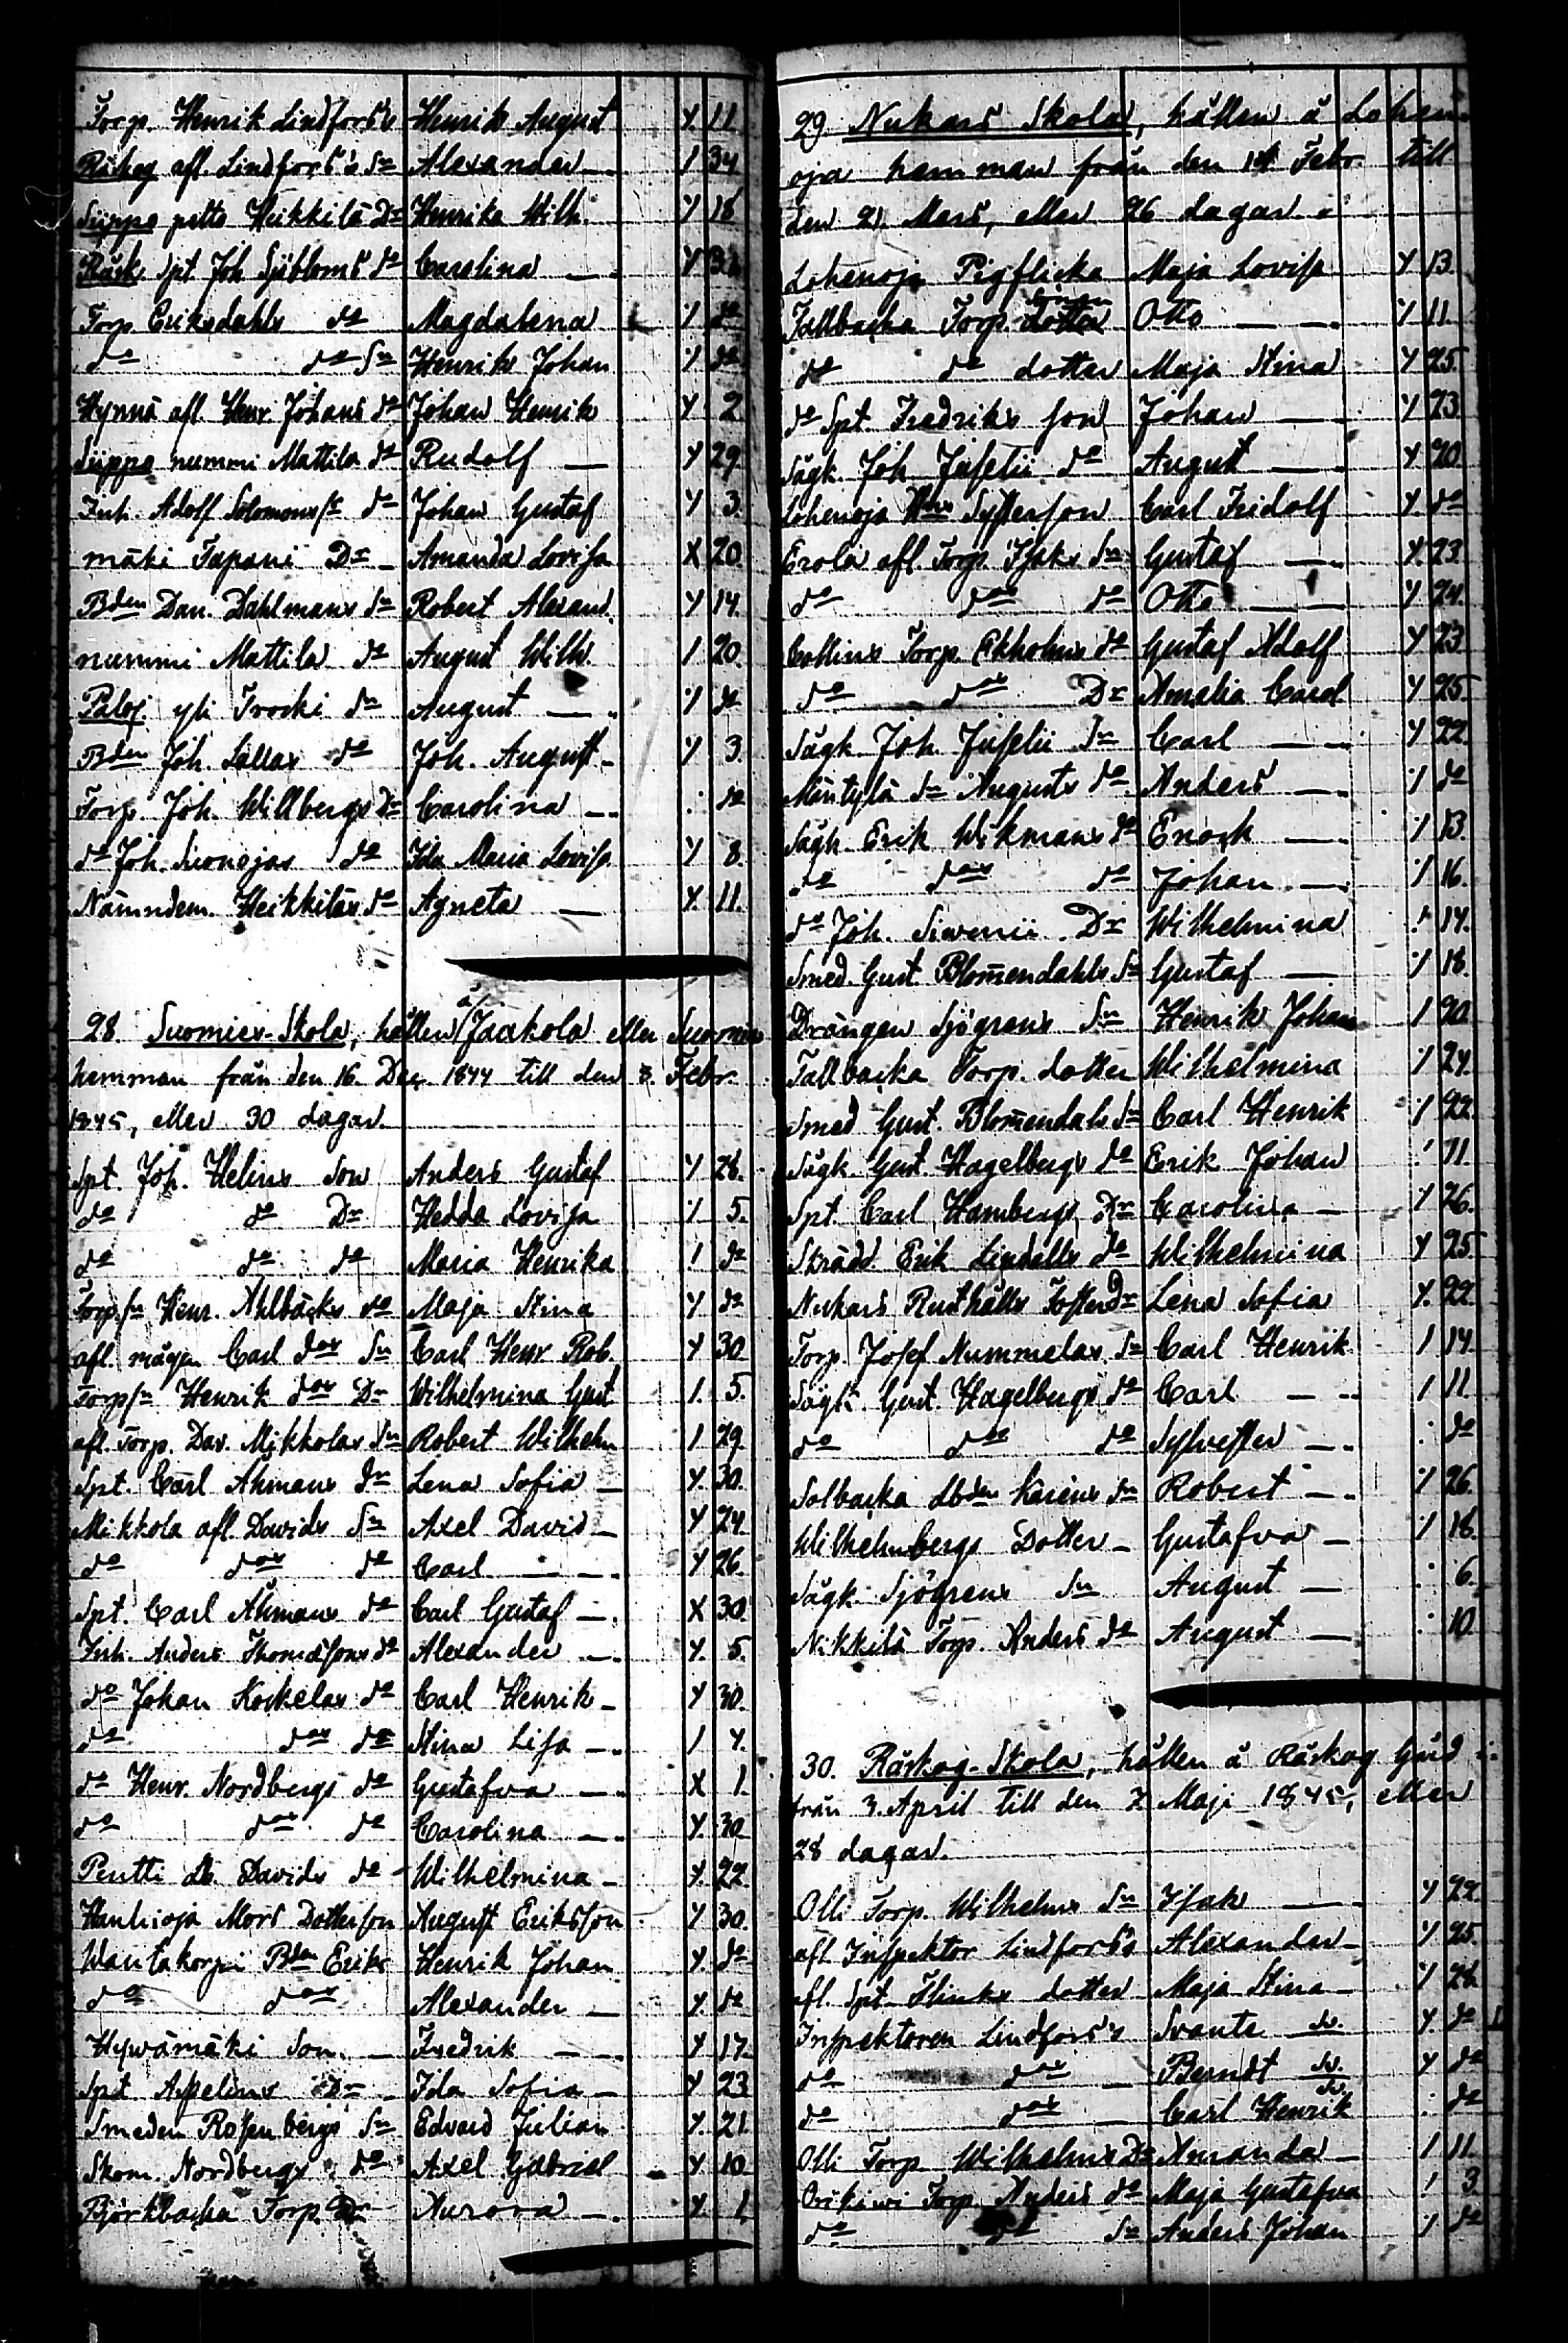 Torp. Henrik Lindfors's Henrik August Y. 11.
Råskog afl. Lindfors's Sn Alexander — 1 34
Seppä petts Heikkilä Dr Henrika Wilh. Y 18
Råsk. Spt. Joh Sjöbloms do Carolina — Y
Torp Eriksdahls do Magdalena 1 do
do do Sn Henrik Johan Y do
Hynnä afl. Henr. Johans do Johan Henrik Y 2
Seppä nummi Mattila do Rudolf — Y 29
Inh. Adolf Solomonss. do Johan Gustaf Y 3.
mäki Tapani Dr Amanda Lovisa X 20.
Bden Dan. Dahlmans Sn Robert Alexand. Y 14.
nummi Mattila do August Wilh. 1 20.
Paloj. yli Trocki Sn August — 1 do
Bden Joh. Lallas do Joh. August Y 3.
Torp. Joh. Willbergs Dr Carolina — . do
do Joh. Suonojas do Ida Maria Lovisa Y 8.
Nämndem. Heikkiläs do Agneta — Y. 11.
28. Suomies-Skola, hållen å Jaakola eller Suomies
hemman från den 16. Dec. 1844 till den 8. Febr.
1845, eller 30 dagar.
Spt. Joh. Helins Son Anders Gustaf Y 28.
do do Dr Hedda Lovisa 1 5.
do do do Maria Henrika 1 do
Torp.sn Henr. Ahlbäcks do Maja Stina Y do
afl. mågen Carl dos Sn Carl Henr Rob. Y 30
Torpsn Henrik dos Dr Wilhelmina Gust 1. 5.
afl. Torp. Dav. Mikkolas Sn Robert Wilhelm 1 29.
Spt. Carl Åhmans Dr Lena Sofia — Y. 30.
Mikkola afl. Davids Sn Axel David — Y 24
do dos do Carl — Y 26.
Spt. Carl Åhmans do Carl Gustaf — X 30.
Inh. Anders Thomassons do Alexander — Y. 5.
do Johan Koskelas do Carl Henrik — Y 30.
do dos Dr Stina Lisa — 1 4.
do Henr. Nordbergs do Gustafva — X 1.
do dos do Carolina — Y. 30
Pentti Davids do Wilhelmina — Y. 22.
Hanhioja Mors Dotterson August Eriksson Y 30.
Wantakorpi Bden Eriks Henrik Johan Y. do
do dos Alexander — Y. do
Hywämäki Son. — Fredrik — Y 17.
Spt Aspelins Dr — Ida Sofia — Y 23
Smeden Rosenbergs Sn Edvard Julian Y. 21.
Skom. Nordbergs do Axel Gabriel Y 10
Björkbacka Torp. Dr Aurora — Y. 1.
29. Nukars Skola, hållen å Lohen-
oja hemman från den 14 Febr. till
den 21. Mars, eller 26 dagar.
Lohenoja Pigflicka Maja Lovisa Y 13.
Tallbacka Torp. Otto — Y 11.
do do dotter Maja Stina Y 25.
do Spt. Fredriks son Johan — Y 23.
Sågk. Joh. Juselii do August — Y. 20.
Lohenoja Systerson Carl Fridolf Y. do
Erola afl. Torp. Isaks Sn Gustaf — Y. 23.
do dos do Otto — Y 24.
Collins Torp. Ekholms do Gustaf Adolf Y 23
do dos Dr Amalia Carol Y 25
Sågk. Joh. Juselii Sn Carl — Y 22.
Mäntylä Sn Augusts do Anders — 1 do
Sågk. Erik Wikmans do Enock — 1 13.
do dos do Johan — 1 16.
do Joh. Siwenii Dr Wilhelmina 1 14.
Smed. Gust. Blomendahls Sn Gustaf — 1 18.
Drängen Sjögrens Sn Henrik Johan 1 20
Tallbacka Torp. dotter Wilhelmina 1 24.
Smed Gust. Blomendahls Sn Carl Henrik 1 22.
Sågk. Gust. Hagelbergs do Erik Johan 1 11.
Spt. Carl Hambergs Dr Carolina — 1 26.
Skrädd Erik Lindells do Wilhelmina Y 25
Nukars Rusthålls FosterDr Lena Sofia Y. 22
Torp. Josef Nummelas Sn Carl Henrik 1 14.
Sågk. Gust. Hagelbergs do Carl — 1 11
do dos do Sylvester — . do
Solbacka Karins Sn Robert — 1 26.
Wilhelmbergs Dotter — Gustafva — 1 18.
Sågk. Sjögrens Sn August — . 6.
Nikkilä Torp. Anders do August — . 10.
30. Råskog-Skola, hållen å Råskog Gård
från 3. April till den 7 Maji 1845, eller
28 dagar.
Olli Torp. Wilhelms Sn Isak — Y 22.
afl. Inspektor Lindfors's Alexander — Y 25.
afl. Spt. Flinks dotter Maja Stina — Y 28.
Inspektoren Lindfors's Svante Y. do
do dos — Berndt Y do
do dos — Carl Henrik . do
Olli Torp Wilhelms Dr Amanda — 1 11.
Orikiwi Torp Anders do Maja Gustafva 1 3.
do Sn Anders Johan 1 do